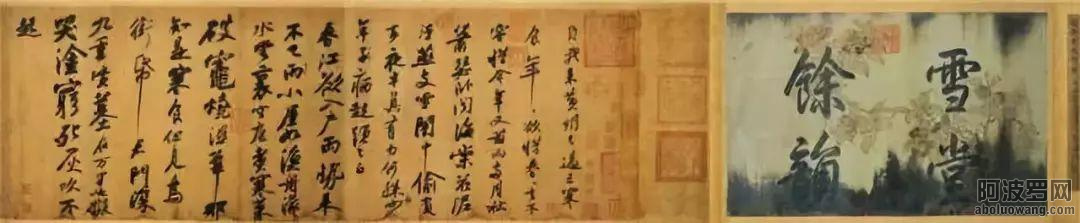 雪堂
餘韻
自我來黃州已過三寒
食年〻欲惜春〻去不
容惜今年又苦雨兩月秋
蕭瑟臥聞海棠花泥
汙燕支雪闇中偷負
去夜半真有力何殊少
年子病起頭已白
春江欲入戶雨勢來
不已雨小屋如漁舟濛〻
水雲裏空庖煮寒菜
破竈燒濕葦那
知是寒食但見烏
銜帋君門深
九重墳墓在万里也擬
哭塗窮死灰吹不
起
阿波罗网
aboluowang.com